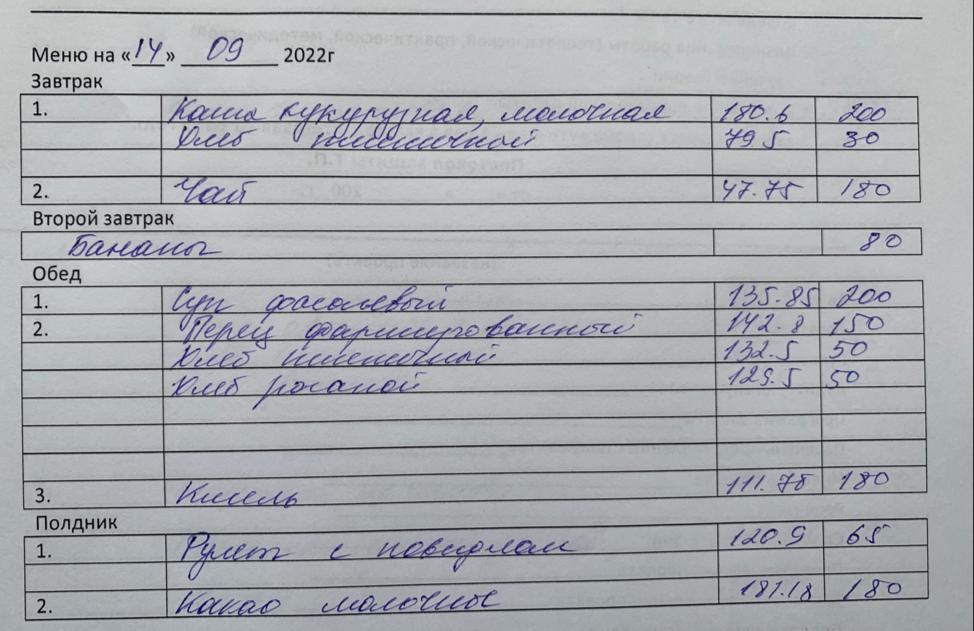 Меню на «14» 09 2022г
Завтрак
1. Каша кукурузная, молочная 180.6 200
Хлеб пшеничный 79.5 30
2. Чай 47.75 180
Второй завтрак
Бананы 80
Обед
1. Суп фасолевый 135.85 200
2. Перец фаршированный 142.8 150
Хлеб пшеничный 132.5 50
Хлеб ржаной 129.5 50
3. Кисель 111.78 180
Полдник
1. Рулет с повидлом 120.9 65
2. Какао молочное 187.18 180